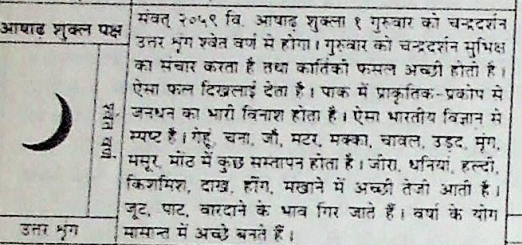 आषाढ शुक्ल पक्ष
श्वेत वर्ण
उत्तर श्रृंग
संवत् २०५९ वि. आषाढ शुक्ला १ गुरुवार को चन्द्रदर्शन
उत्तर श्रृंग श्वेत वर्ण से होगा। गुरुवार को चन्द्रदर्शन सुभिक्ष
का संचार करता है तथा कार्तिकी फसल अच्छी होती है।
ऐसा फल दिखलाई देता है। पाक में प्राकृतिक-प्रकोप से
जनधन का भारी विनाश होता है। ऐसा भारतीय विज्ञान में
स्पष्ट है। गेहूं, चना, जौ, मटर, मक्का, चावल, उड़द, मूंग,
मसूर, मोंठ में कुछ सस्तापन होता है। जीरा, धनियां, हल्दी,
किशमिश, दाख, हींग, मखाने में अच्छी तेजी आती है।
जूट, पाट, बारदाने के भाव गिर जाते हैं। वर्षा के योग
मासान्त में अच्छे बनते हैं।